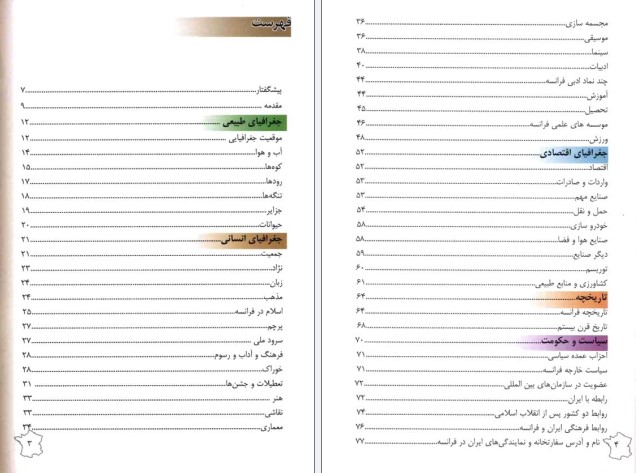 فهرست
پیشگفتار ........ ۷
مقدمه ........ ۹
جغرافیای طبیعی ........ ۱۲
موقعیت جغرافیایی ........ ۱۲
آب و هوا ........ ۱۴
کوه‌ها ........ ۱۵
رودها ........ ۱۷
تنگه‌ها ........ ۱۸
جزایر ........ ۱۹
حیوانات ........ ۲۰
جغرافیای انسانی ........ ۲۱
جمعیت ........ ۲۱
نژاد ........ ۲۳
زبان ........ ۲۴
مذهب ........ ۲۴
اسلام در فرانسه ........ ۲۵
پرچم ........ ۲۷
سرود ملی ........ ۲۷
فرهنگ و آداب و رسوم ........ ۲۸
خوراک ........ ۲۸
تعطیلات و جشن‌ها ........ ۳۱
هنر ........ ۳۳
نقاشی ........ ۳۳
معماری ........ ۳۴
۳
مجسمه سازی ........ ۳۶
موسیقی ........ ۳۶
سینما ........ ۳۸
ادبیات ........ ۴۰
چند نماد ادبی فرانسه ........ ۴۴
آموزش ........ ۴۴
تحصیل ........ ۴۵
موسسه های علمی فرانسه ........ ۴۶
ورزش ........ ۴۸
جغرافیای اقتصادی ........ ۵۲
اقتصاد ........ ۵۲
واردات و صادرات ........ ۵۳
صنایع مهم ........ ۵۳
حمل و نقل ........ ۵۴
خودرو سازی ........ ۵۸
صنایع هوا و فضا ........ ۵۸
دیگر صنایع ........ ۵۹
توریسم ........ ۶۰
کشاورزی و منابع طبیعی ........ ۶۱
تاریخچه ........ ۶۴
تاریخچه فرانسه ........ ۶۴
تاریخ قرن بیستم ........ ۶۸
سیاست و حکومت ........ ۷۰
احزاب عمده سیاسی ........ ۷۱
سیاست خارجه فرانسه ........ ۷۱
عضویت در سازمان‌های بین المللی ........ ۷۲
رابطه با ایران ........ ۷۲
روابط دو کشور پس از انقلاب اسلامی ........ ۷۴
روابط فرهنگی ایران و فرانسه ........ ۷۶
نام و آدرس سفارتخانه و نمایندگی‌های ایران در فرانسه ........ ۷۷
۴